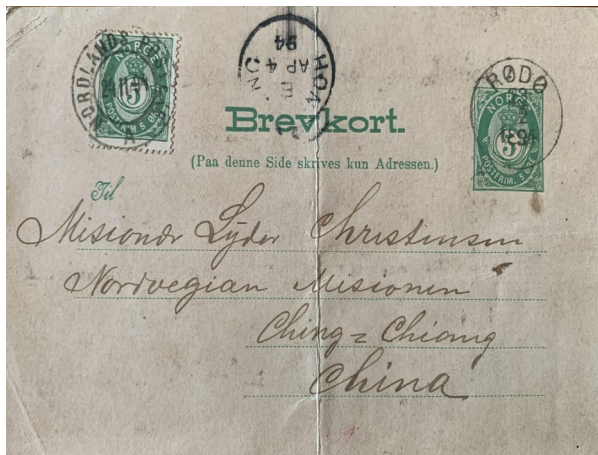 NORGE
5
POSTFRIM. 5 ØRE
NORDLANDS
24 II 94
A
HONG
E
AP 4
94
RØDØ
2
1894
NORGE
5
POSTFRIM. 5 ØRE
Brevkort.
(Paa denne Side skrives kun Adressen.)
Til
Misionær Lyder Christensen
Norvegian Misionen
Ching = Chiang
China